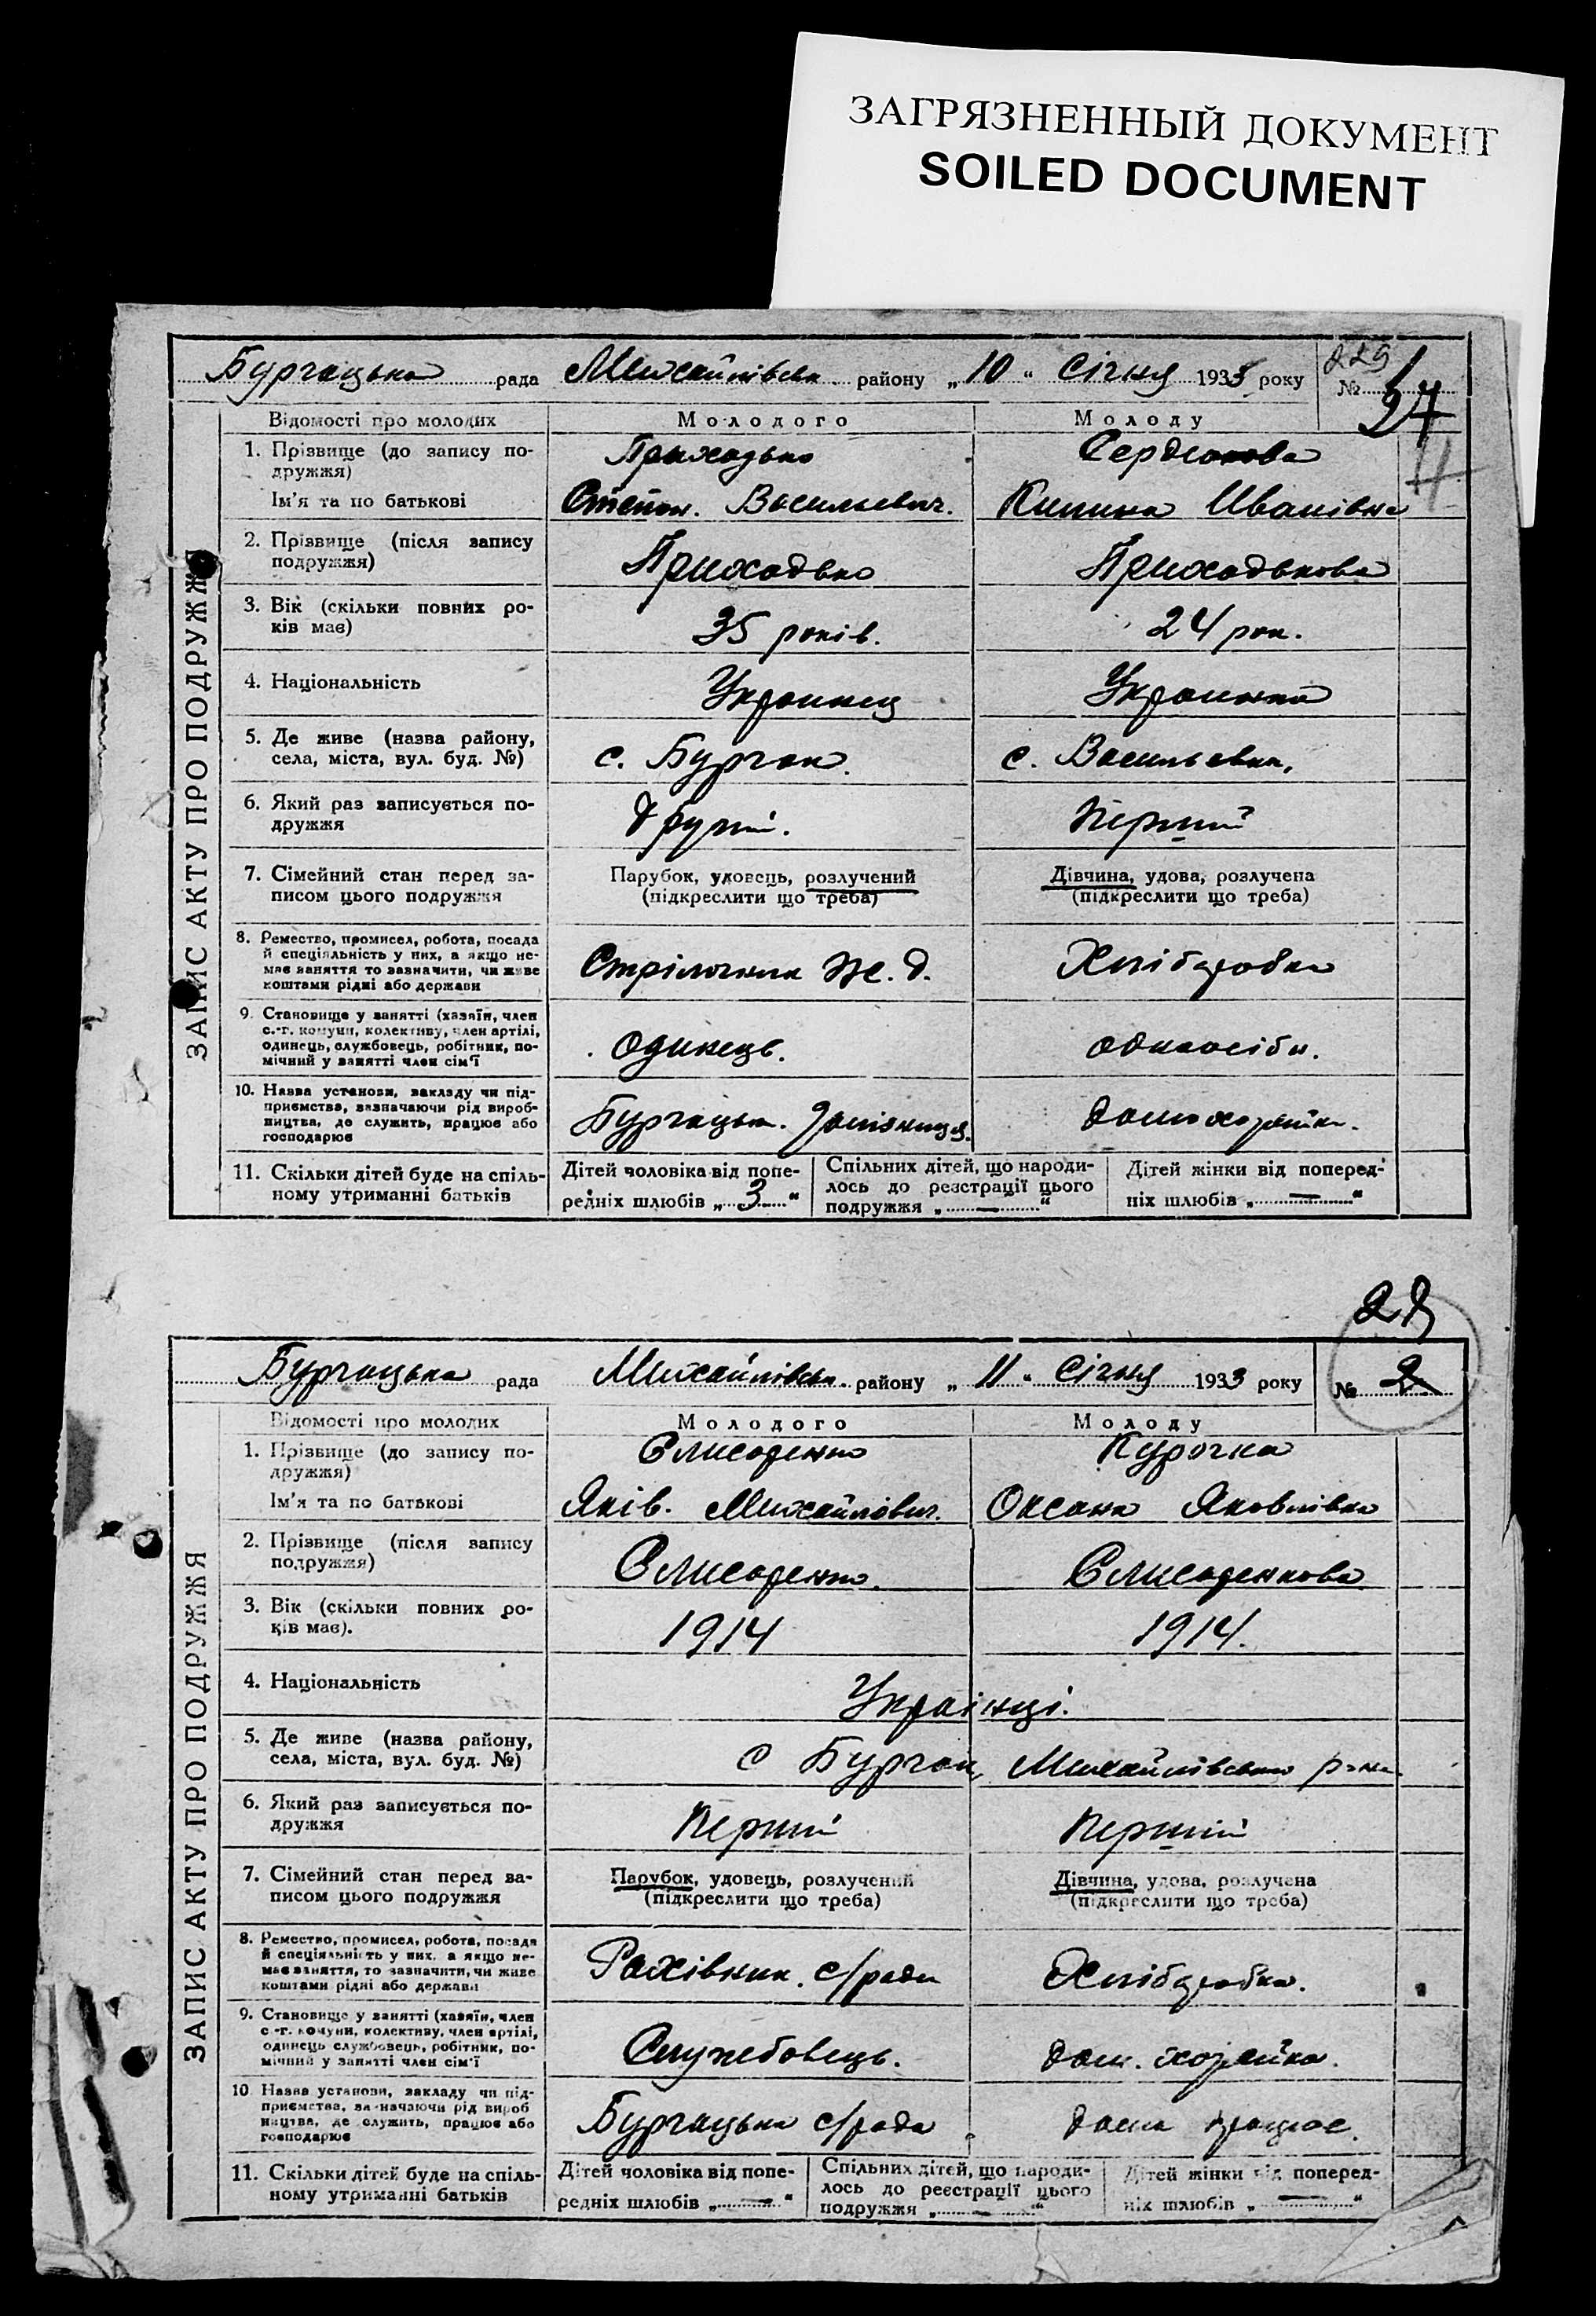 ЗАГРЯЗНЕННЫЙ ДОКУМЕНТ
SOILED DOCUMENT
229
Бургацька рада Михайлівськ. району „10“ Січня 1933 року №
27
4
Відомості про молодих Молодого Молоду
1. Прізвище (до запису по-
дружжя)
Приходько Сердюкова
Ім'я та по батькові Степан. Васильевич. Килина Иванівна
2. Прізвище (після запису
подружжя)
Приходько Приходькова
3. Вік (скільки повних ро-
ків має)
35 років. 24 рок.
4. Національність Украинец Украинка
5. Де живе (назва району,
села, міста, вул. буд. №)
с. Бурчак. с. Васильевка,
6. Який раз записується по-
дружжя
другий. Перший
7. Сімейний стан перед за-
писом цього подружжя
Парубок, удовець, розлучений
(підкреслити що треба)
Дівчина, удова, розлучена
(підкреслити що треба)
8. Ремество, промисел, робота, посада
й спеціяльність у них, а якщо не-
має заняття то зазначити, чи живе
коштами рідні або держави
Стрілочник Ж. д. Хліборобка
9. Становище у занятті (хазяїн, член
с.-г. комуни, колективу, член артілі,
одинець, службовець, робітник, по-
мічний у занятті член сім'ї
Одинець. одноосібн.
10. Назва установи, закладу чи під-
приємства, зазначаючи рід вироб-
ництва, де служить, працює або
господарює
Бургацьк. Залізниця. домохозяйка.
11. Скільки дітей буде на спіль-
ному утриманні батьків
Дітей чоловіка від попе-
редніх шлюбів „3“
Спільних дітей, що народи-
лось до реєстрації цього
подружжя „—“
Дітей жінки від поперед-
ніх шлюбів „—“
ЗАПИС АКТУ ПРО ПОДРУЖЖЯ
28
Бургацька рада Михайлівськ. району „11“ Січня 1933 року № 2
Відомості про молодих Молодого Молоду
1. Прізвище (до запису по-
дружжя)
Єлисоренко Курочка
Ім'я та по батькові Яків. Михайлович. Оксана Яковлівна
2. Прізвище (після запису
подружжя)
Єлисоренко. Єлисоренкова
3. Вік (скільки повних ро-
ків має).
1914 1914.
4. Національність Українці.
5. Де живе (назва району,
села, міста, вул. буд. №)
с Бурчак, Михайлівського р-на
6. Який раз записується по-
дружжя
Перший Перший
7. Сімейний стан перед за-
писом цього подружжя
Парубок, удовець, розлучений
(підкреслити що треба)
Дівчина, удова, розлучена
(підкреслити що треба)
8. Ремество, промисел, робота, посада
й спеціяльність у них, а якщо не-
має заняття, то зазначити, чи живе
коштами рідні або держави
Рахівник. с/ради Хліборобка.
9. Становище у занятті (хазяїн, член
с.-г. комуни, колективу, член артілі,
одинець службовець, робітник, по-
мічний у занятті член сім'ї
Службовець. дом. хозяйка.
10 Назва установи, закладу чи під-
приємства, зазначаючи рід вироб
ництва, де служить, працює або
господарює
Бургацька с/рада дома працює.
11. Скільки дітей буде на спіль-
ному утриманні батьків
Дітей чоловіка від попе-
редніх шлюбів „—“
Спільних дітей, що народи-
лось до реєстрації цього
подружжя „—“
Дітей жінки від поперед-
ніх шлюбів „—“
ЗАПИС АКТУ ПРО ПОДРУЖЖЯ